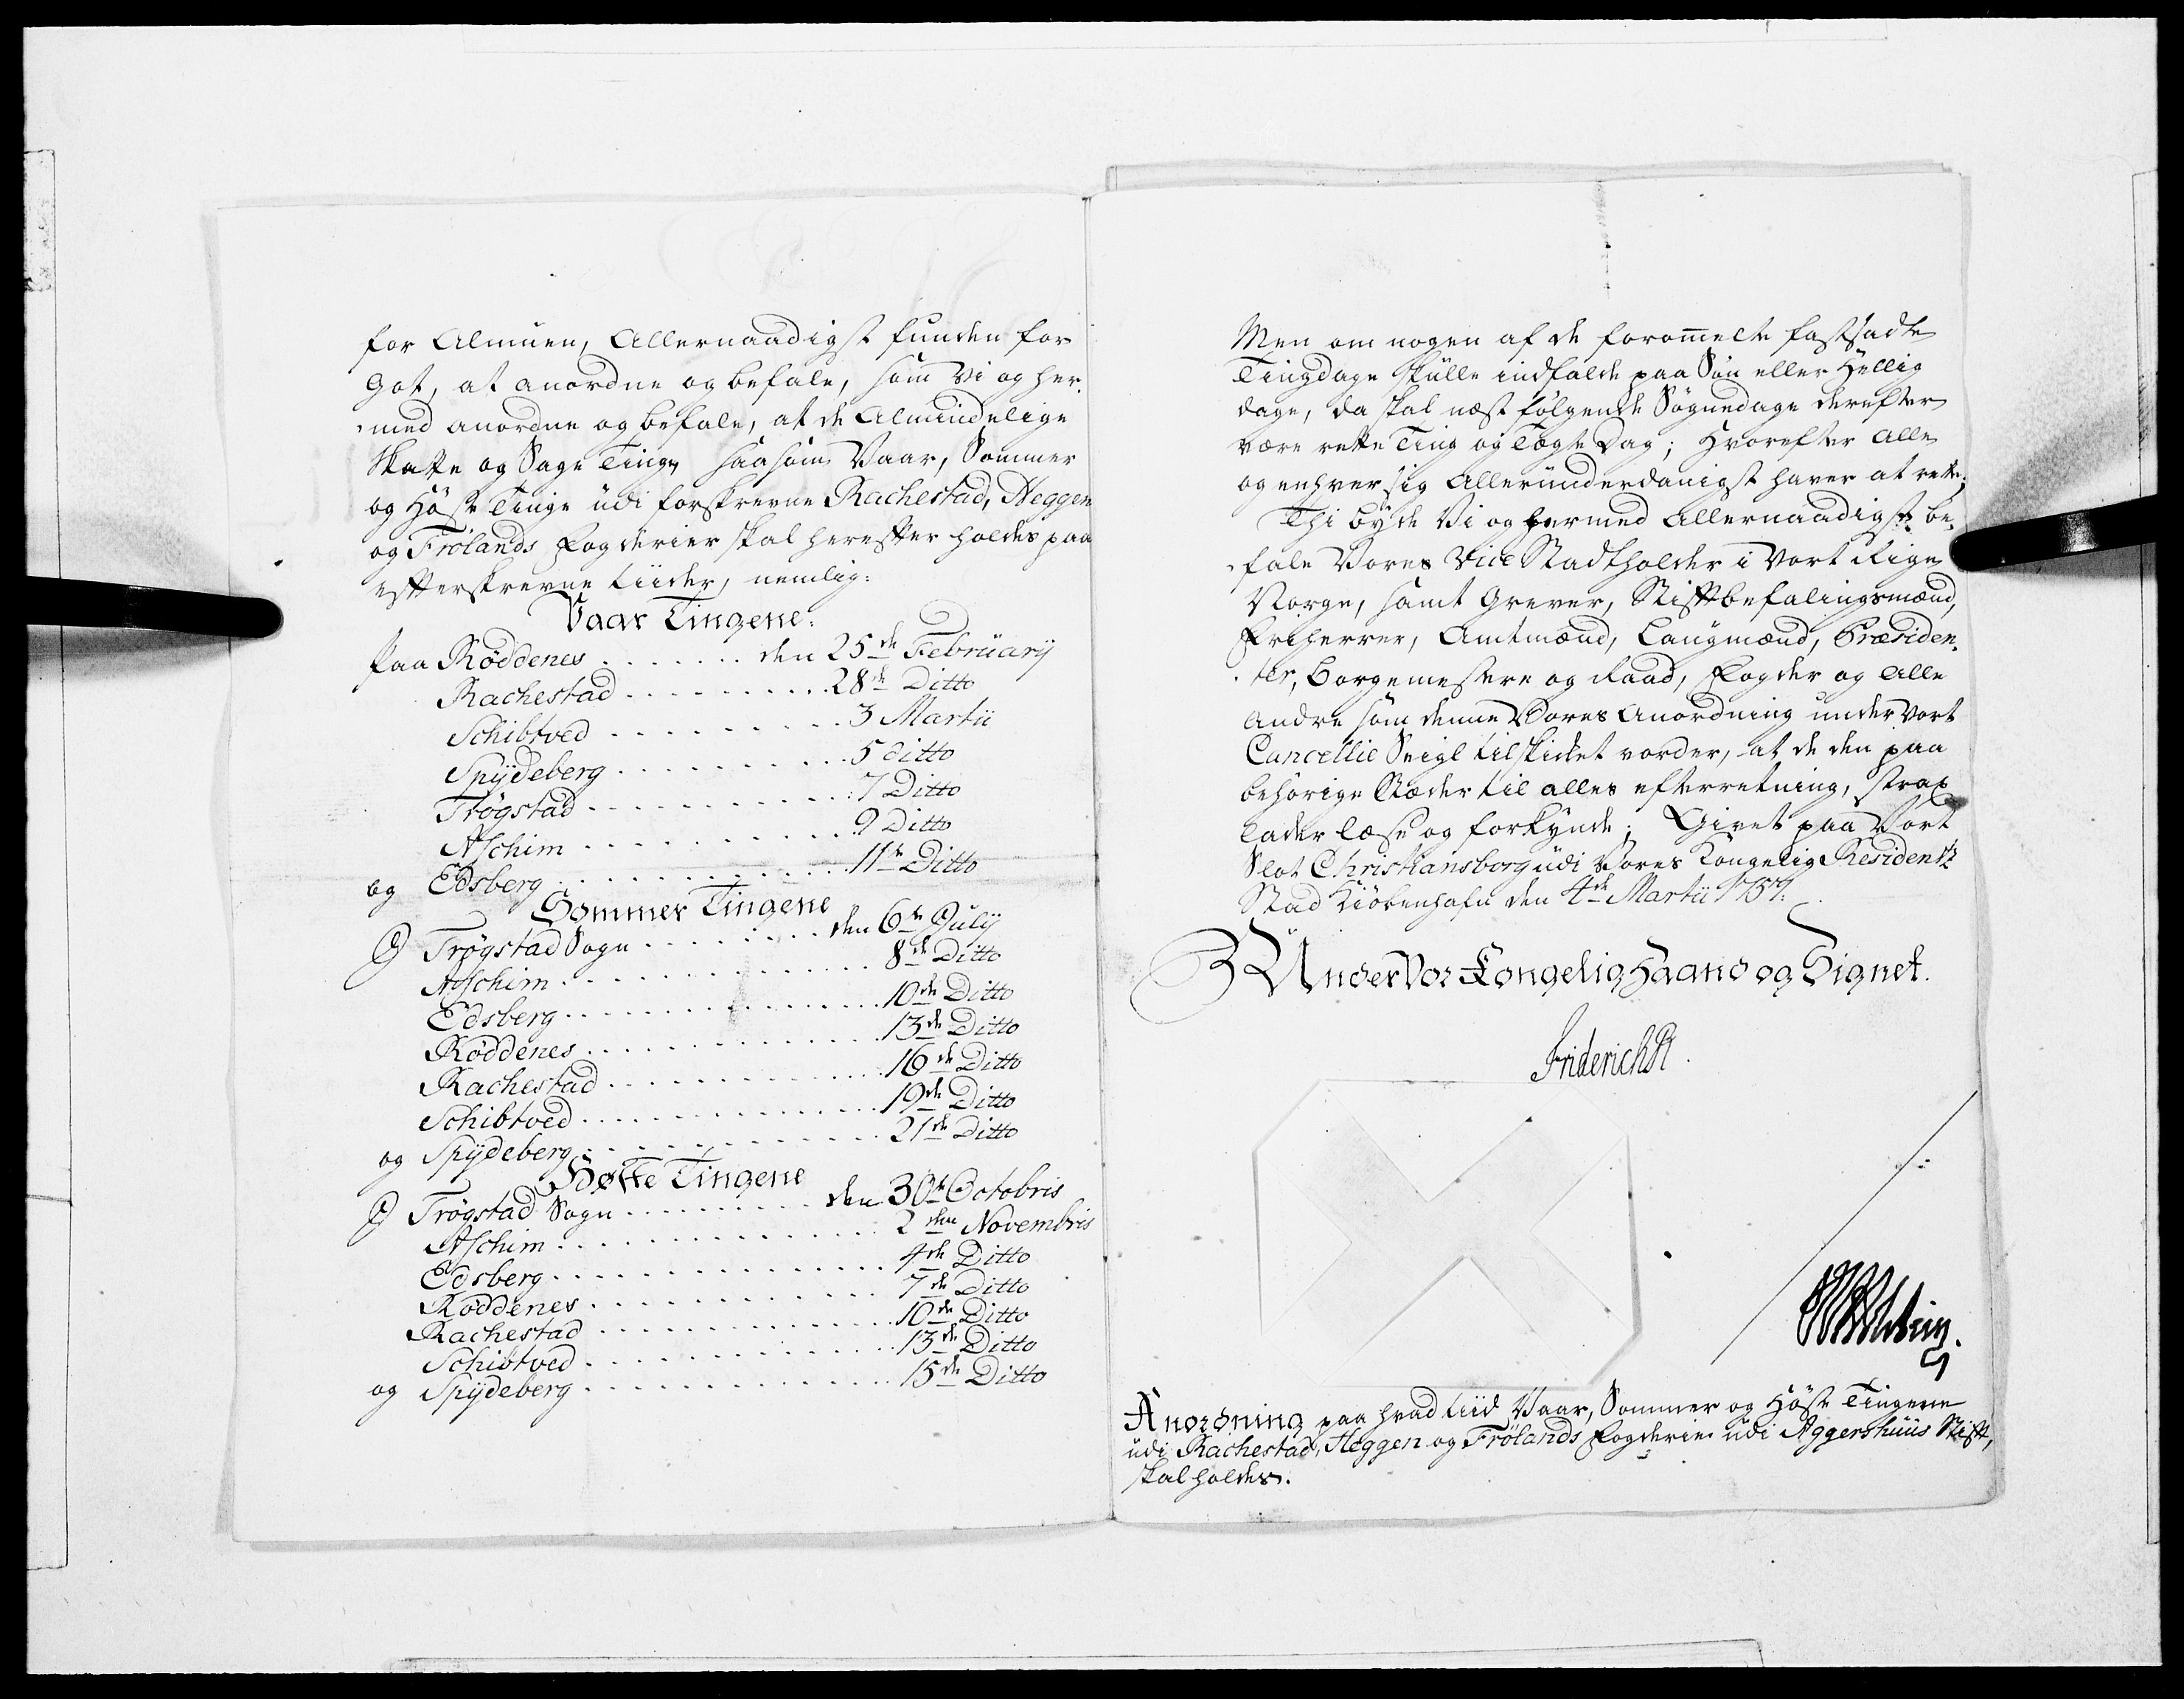 for Almuen, Allernaadigst funden for
Got, at anordne og befale, som Vi og her-
med anordne og befale, at de Almindelige
Skatte og Sage Ting, saasom Vaar, Sommer
og Höste Tinge udi forskrevne Rachestad, Heggen
og Frölands Fogderier skal herefter holdes paa
efterskrevne tiider, nemlig:
Vaar Tingene:
Paa Røddenes ....... den 25de Februarij
Rachestad .......... 28de Ditto
Schibtved .......... 3 Martii
Spydeberg .......... 5 ditto
Trögstad .......... 7 Ditto
Aschim .......... 9 Ditto
og Edsberg .......... 11te Ditto
Sommer Tingene
I Trögstad Sogn ........ den 6te Julij
Aschim .......... 8de Ditto
Edsberg .......... 10de Ditto
Røddenes .......... 13de Ditto
Rachestad .......... 16de Ditto
Schibtved .......... 19de Ditto
og Spydeberg .......... 21de Ditto
Høste Tingene
I Trögstad Sogn ......... den 30te Octobris
Aschim .......... 2den Novembris
Edsberg .......... 4de Ditto
Røddenes .......... 7de Ditto
Rachestad .......... 10de Ditto
Schibtved .......... 13de Ditto
og Spydeberg .......... 15de Ditto
Men om nogen af de forommelte fastsadte
Tingdage skulle indfalde paa Søn eller Hellig
dage, da skal næst følgende Søgnedage derefter
være rette Ting og Tægte Dag; Hvorefter alle
og enhver sig Allerunderdanigst haver at rette;
Thi byde Vi og hermed Allernaadigst be-
fale Vores Vice Stadtholder i Vort Rige
Norge, samt Grever, Stiftbefalingsmænd,
Friherrer, Amtmænd, Laugmænd, Præsiden-
ter, Borgemestere og Raad, Fogder og alle
andre som denne Vores Anordning under Vort
Cancellie Seigl tilskicket vorder, at de den paa
behörige Stæder til alles efterretning, strax
lader læse og forkynde; Givet paa Vort
Slot Christiansborg udi Vores Kongelig Residentz
Stad Kiöbenhafn den 4de Martii 1757.
Under Vor Kongelig Haand og Signet.
Friderich R.
Anordning paa hvad tiid Vaar, Sommer og Höste Tingene
udi Rachestad, Heggen og Frölands Fogderie udi Aggershuus Stift,
skal holdes.